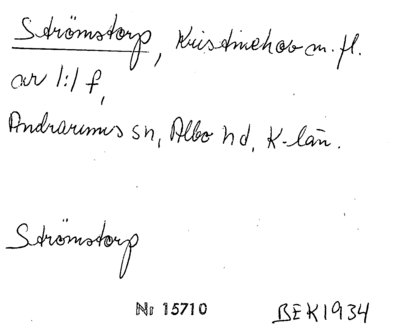 Strömstorp, Kristinehov m.fl.
av 1:1 f,
Andrarums sn, Albo hd, K-län.
Strömstorp
Nr 15710 BEK1934